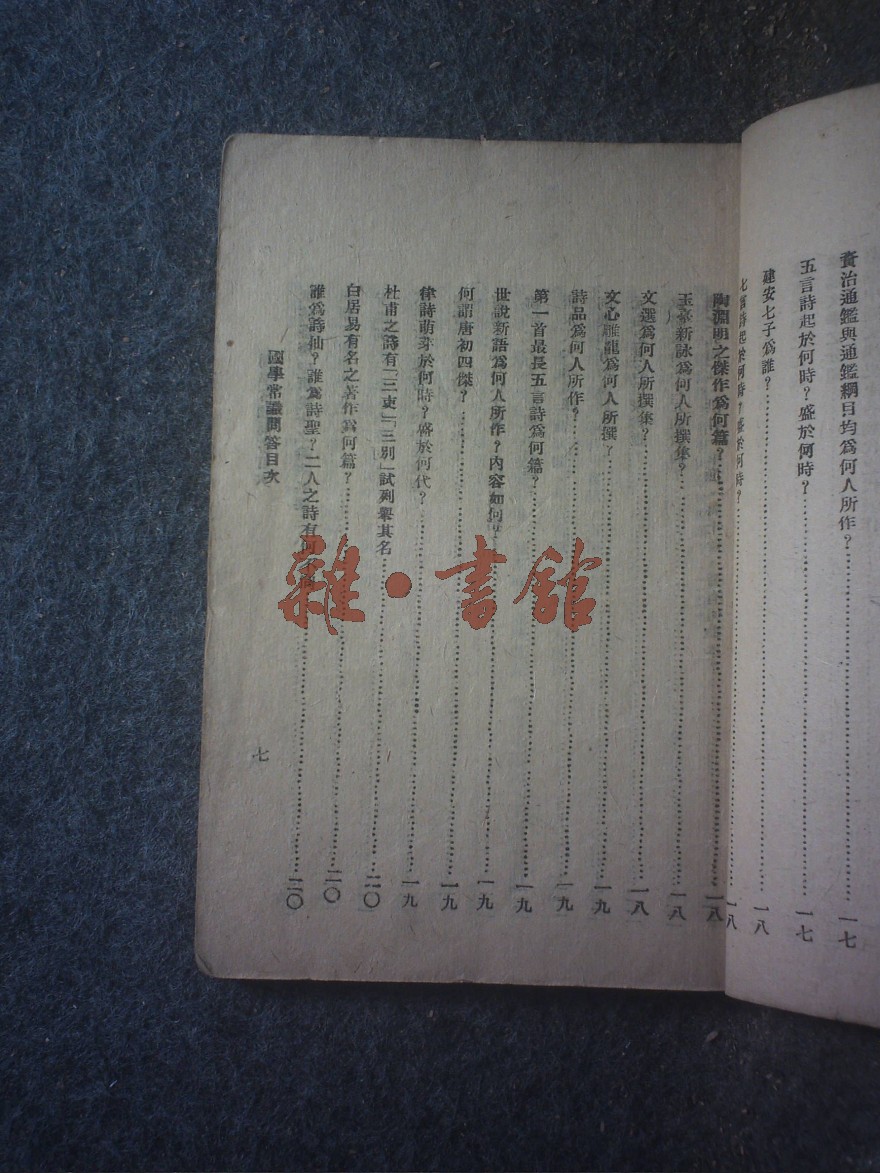 資治通鑑與通鑑綱目均爲何人所作？……一七
五言詩起於何時？盛於何時？……一七
建安七子爲誰？……一八
七言詩起於何時？盛於何時？……一八
陶淵明之傑作爲何篇？……一八
玉臺新詠爲何人所撰集？……一八
文選爲何人所撰集？……一八
文心雕龍爲何人所撰？……一九
詩品爲何人所作？……一九
第一首最長五言詩爲何篇？……一九
世說新語爲何人所作？內容如何？……一九
何謂唐初四傑？……一九
律詩萌芽於何時？盛於何代？……一九
杜甫之詩有「三吏」「三別」試列舉其名……二〇
白居易有名之著作爲何篇？……二〇
誰爲詩仙？誰爲詩聖？二人之詩有何……二〇
國學常識問答目次
七
雜·書館